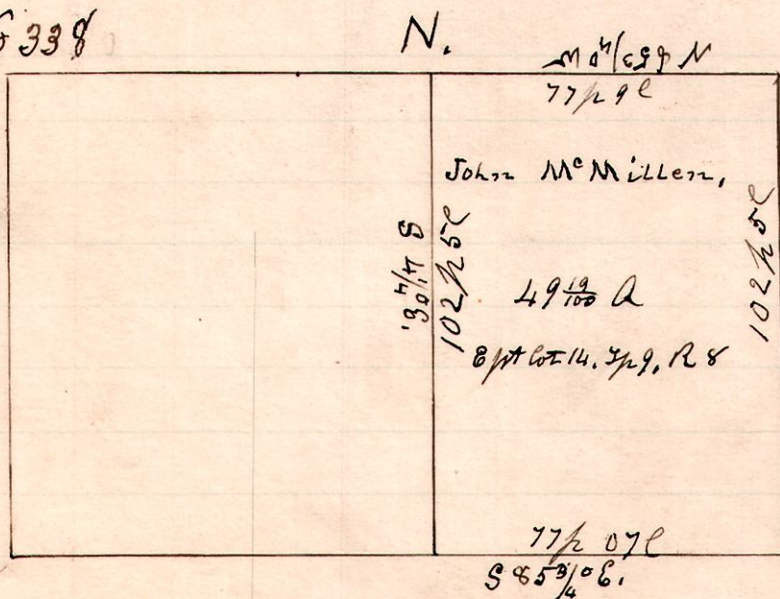 338
N.
N 85 3/4° W
77p 9l
John McMillen,
S 4 1/4° E.
102p 5l
102p 5l
49 19/100 A
E pt lot 14. Tp 9, R 8
77p 07l
S 85 3/4° E.